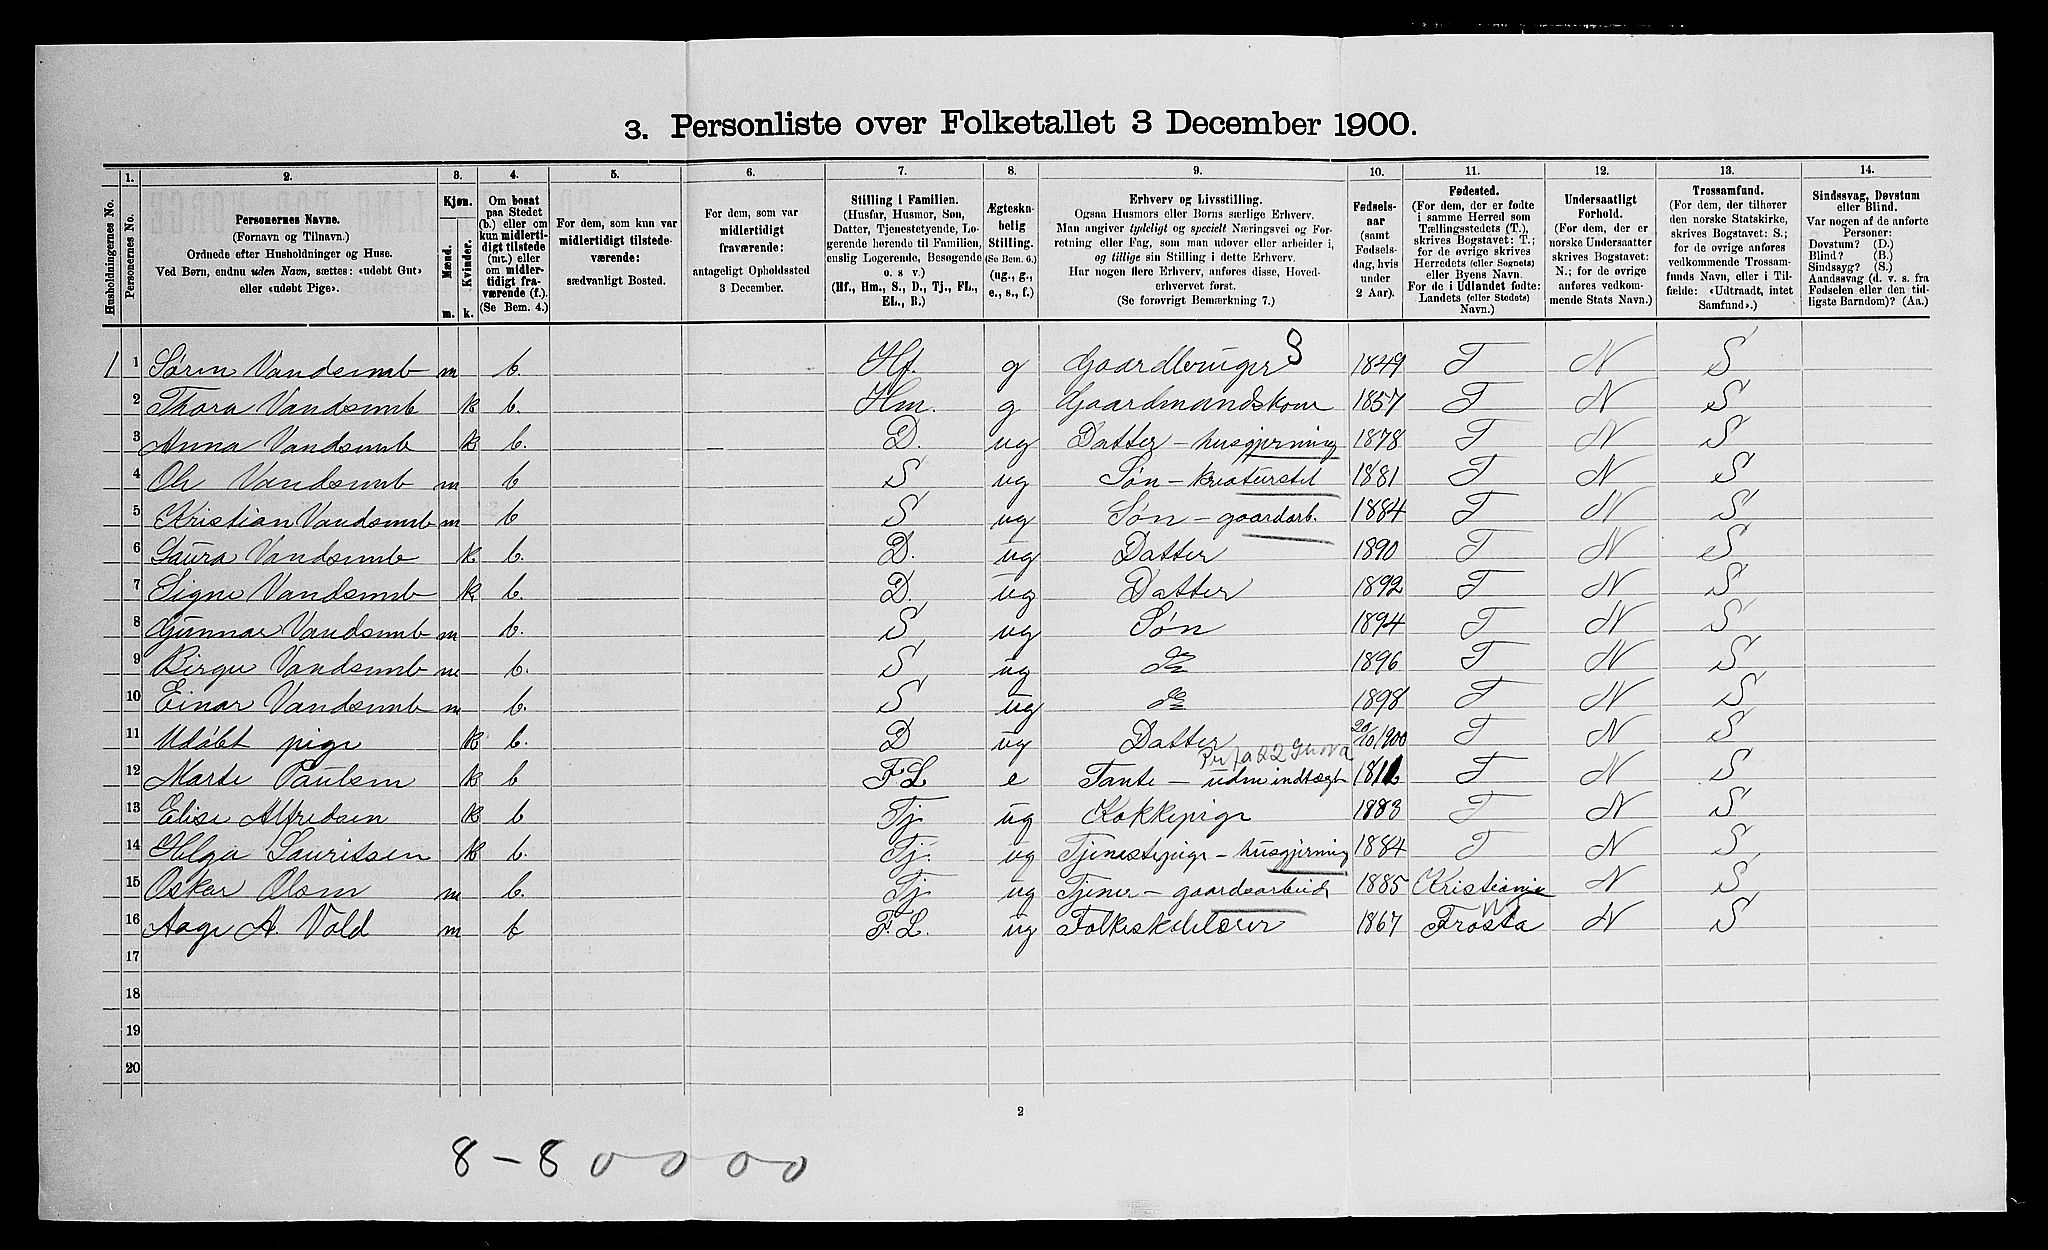 3. Personliste over Folketallet 3 December 1900.
1. 2. 3. 4. 5. 6. 7. 8. 9. 10. 11. 12. 13. 14.
Husholdningernes No.
Personernes No.
Personernes Navne.
(Fornavn og Tilnavn.)
Ordnede efter Husholdninger og Huse.
Ved Børn, endnu uden Navn, sættes: «udøbt Gut»
eller «udøbt Pige».
Kjøn.
Mænd.
Kvinder.
m. k.
Om bosat
paa Stedet
(b.) eller om
kun midlerti-
digt tilstede
(mt.) eller
om midler-
tidigt fra-
værende (f.).
(Se Bem. 4.)
For dem, som kun var
midlertidigt tilstede-
værende:
sædvanligt Bosted.
For dem, som var
midlertidigt
fraværende:
antageligt Opholdssted
3 December.
Stilling i Familien.
(Husfar, Husmor, Søn,
Datter, Tjenestetyende, Lo-
gerende hørende til Familien,
enslig Logerende, Besøgende
o. s v.)
(Hf., Hm., S., D., Tj., FL.,
EL., B.)
Ægteska-
belig
Stilling.
(Se Bem. 6.)
(ug., g.,
e., s., f.)
Erhverv og Livsstilling.
Ogsaa Husmors eller Børns særlige Erhverv.
Man angiver tydeligt og specielt Næringsvei og For-
retning eller Fag, som man udøver eller arbeider i,
og tillige sin Stilling i dette Erhverv.
Har nogen flere Erhverv, anføres disse, Hoved-
erhvervet først.
(Se forøvrigt Bemærkning 7.)
Fødsels-
aar
(samt
Fødsels-
dag, hvis
under
2 Aar).
Fødested.
(For dem, der er fødte
i samme Herred som
Tællingsstedets (T.),
skrives Bogstavet: T.;
for de øvrige skrives
Herredets (eller Sognets)
eller Byens Navn.
For de i Udlandet fødte:
Landets (eller Stedets)
Navn.)
Undersaatligt
Forhold.
(For dem, der er
norske Undersaatter
skrives Bogstavet:
N.; for de øvrige
anføres vedkom-
mende Stats Navn.)
Trossamfund.
(For dem, der tilhører
den norske Statskirke,
skrives Bogstavet: S.;
for de øvrige anføres
vedkommende Trossam-
funds Navn, eller i Til-
fælde: «Udtraadt, intet
Samfund».)
Sindssvag, Døvstum
eller Blind.
Var nogen af de anførte
Personer:
Døvstum? (D.)
Blind? (B.)
Sindssyg? (S.)
Aandssvag (d. v. s. fra
Fødselen eller den tid-
ligste Barndom)? (Aa.)
8
1 1 Søren Vandsemb m b. Hf. g Gaardbruger 1849 T N S
2 Thora Vandsemb k b. Hm. g Gaardmandskone 1857 T N S
3 Anna Vandsemb k b. D. ug Datter - husgjerning 1878 T N S
4 Ole Vandsemb m b S ug Søn - kreaturstel 1881 T N S
5 Kristian Vandsemb m b S ug Søn - gaardarb. 1884 T N S
6 Laura Vandsemb k b. D. ug Datter 1890 T N S
7 Signe Vandsemb k b. D. ug Datter 1892 T N S
8 Gunnar Vandsemb m b. S ug Søn 1894 T N S
9 Birger Vandsemb m b. S ug 1896 T N S
10 Einar Vandsemb m b. S ug 1898 T N S
11 Udøbt pige k b. D ug Datter 10/1900 T N S
12 Marte Paulsen k b F L e Tante - uden indtægt T N S
13 Elise Alfredsen k b Tj ug Kokkepige 1883 T N S
14 Helga Lauritsen k b. Tj. ug Tjenestepige - husgjerning 1884 T N S
15 Oskar Olsen m b. Tj ug Tjener - gaardsarbeide 1885 Kristiania N S
16 Aage A. Vold m b F. L. ug Folkeskolelærer 1867 Frosta N S
17
18
19
20
2
8 - 8 0 0 0 0